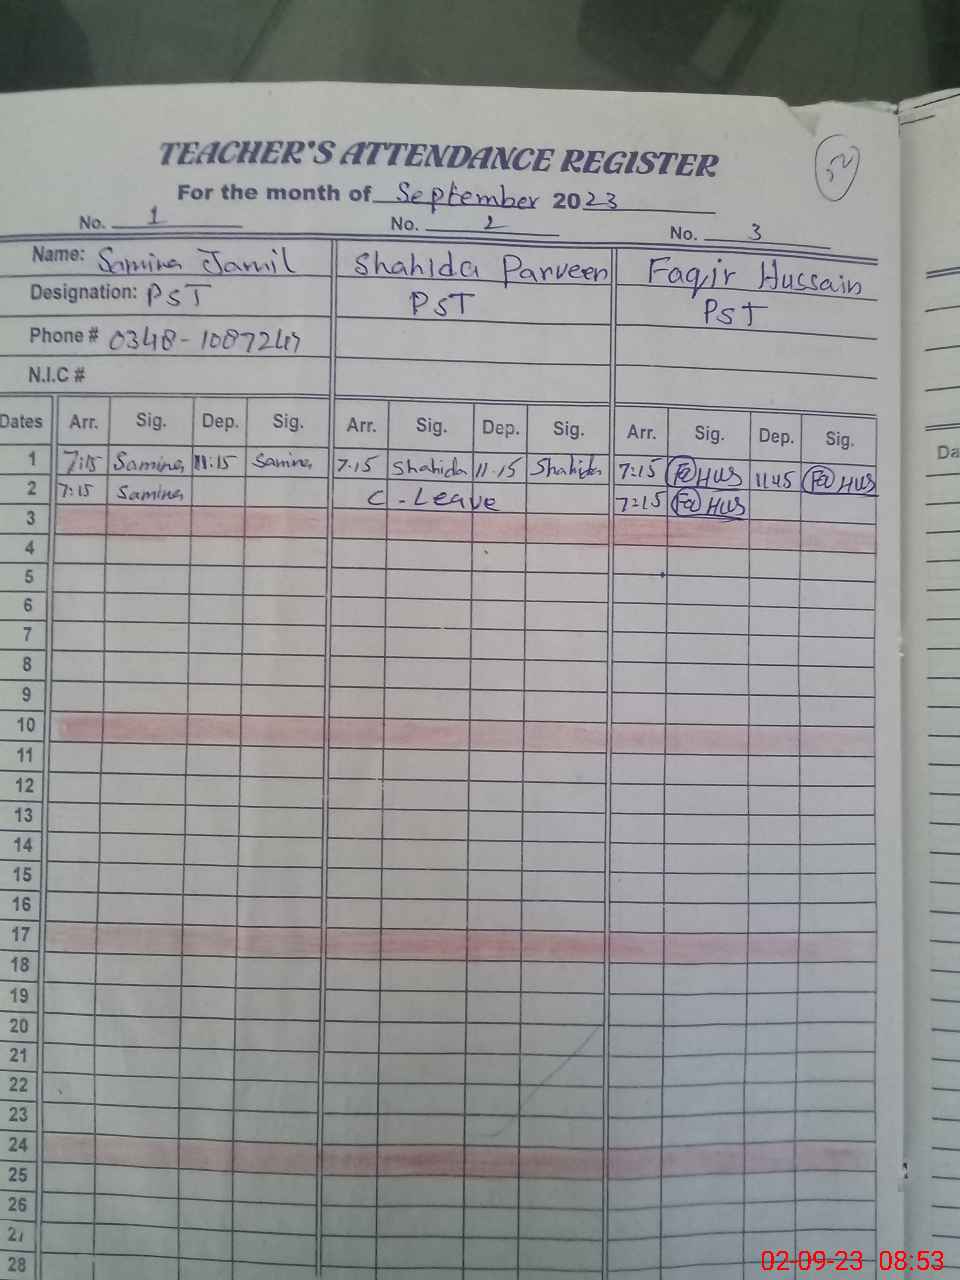 TEACHER'S ATTENDANCE REGISTER
52
For the month of September 2023
No. 1 No. 2 No. 3
Name: Samina Jamil Shahida Parveen Faqir Hussain
Designation: PST PST PST
Phone # 0348-1087247
N.I.C #
Dates Arr. Sig. Dep. Sig. Arr. Sig. Dep. Sig. Arr. Sig. Dep. Sig.
1 7:15 Samina 11:15 Samina 7.15 Shahida 11.15 Shahida 7:15 Fa HUS 11:45 Fa HUS
2 7:15 Samina C - Leave 7:15 Fa HUS
3
4
5
6
7
8
9
10
11
12
13
14
15
16
17
18
19
20
21
22
23
24
25
26
27
28
Da
02-09-23 08:53